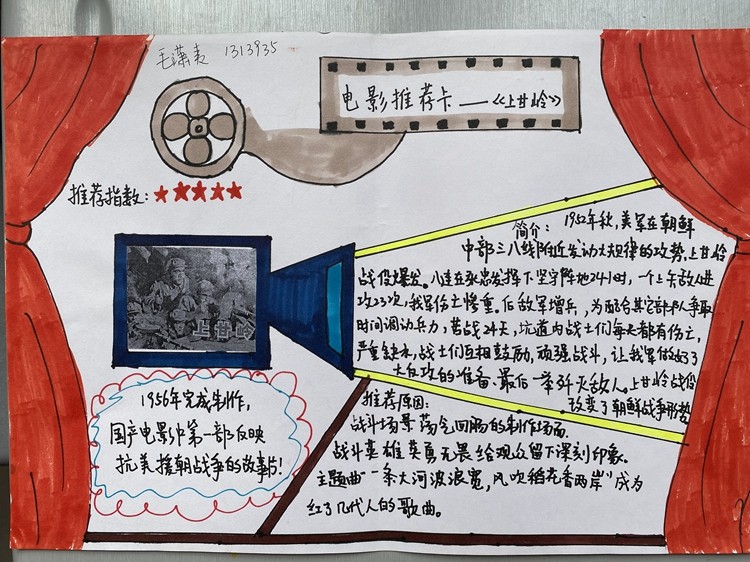 毛潇 1313935
电影推荐卡——《上甘岭》
推荐指数：★★★★★
简介：1952年秋，美军在朝鲜
中部三八线附近发动大规律的攻势，上甘岭
战役爆发。八连在张忠发挥下坚守阵地24小时，一个上午敌人进
攻23次，我军伤亡惨重。后敌军增兵，为配合其它部队争取
时间调动兵力，苦战24天，坑道内战士们每天都有伤亡，
严重缺水，战士们互相鼓励，顽强战斗，让我军做好了
大反攻的准备。最后一举歼灭敌人。上甘岭战役
改变了朝鲜战争形势
上甘岭
1956年完成制作，
国产电影中第一部反映
抗美援朝战争的故事片！
推荐原因：
战斗场景荡气回肠的制作场面.
战斗英雄英勇无畏给观众留下深刻印象。
主题曲"一条大河波浪宽，风吹稻花香两岸"成为
红了几代人的歌曲。